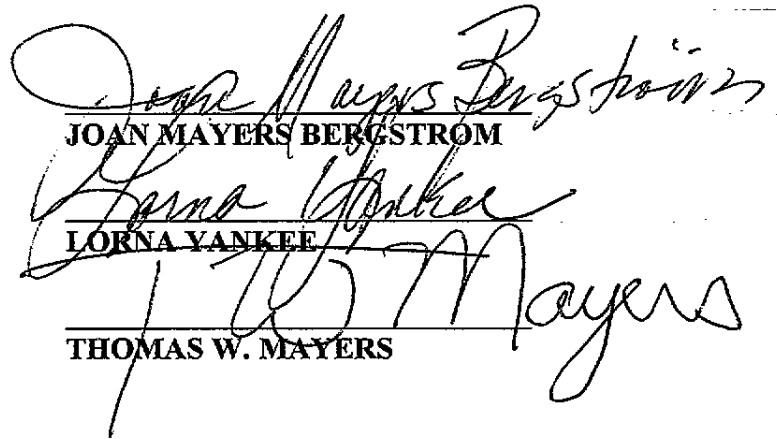 Joan Mayers Bergström
JOAN MAYERS BERGSTROM
Lorna Yankee
LORNA YANKEE
T W Mayers
THOMAS W. MAYERS